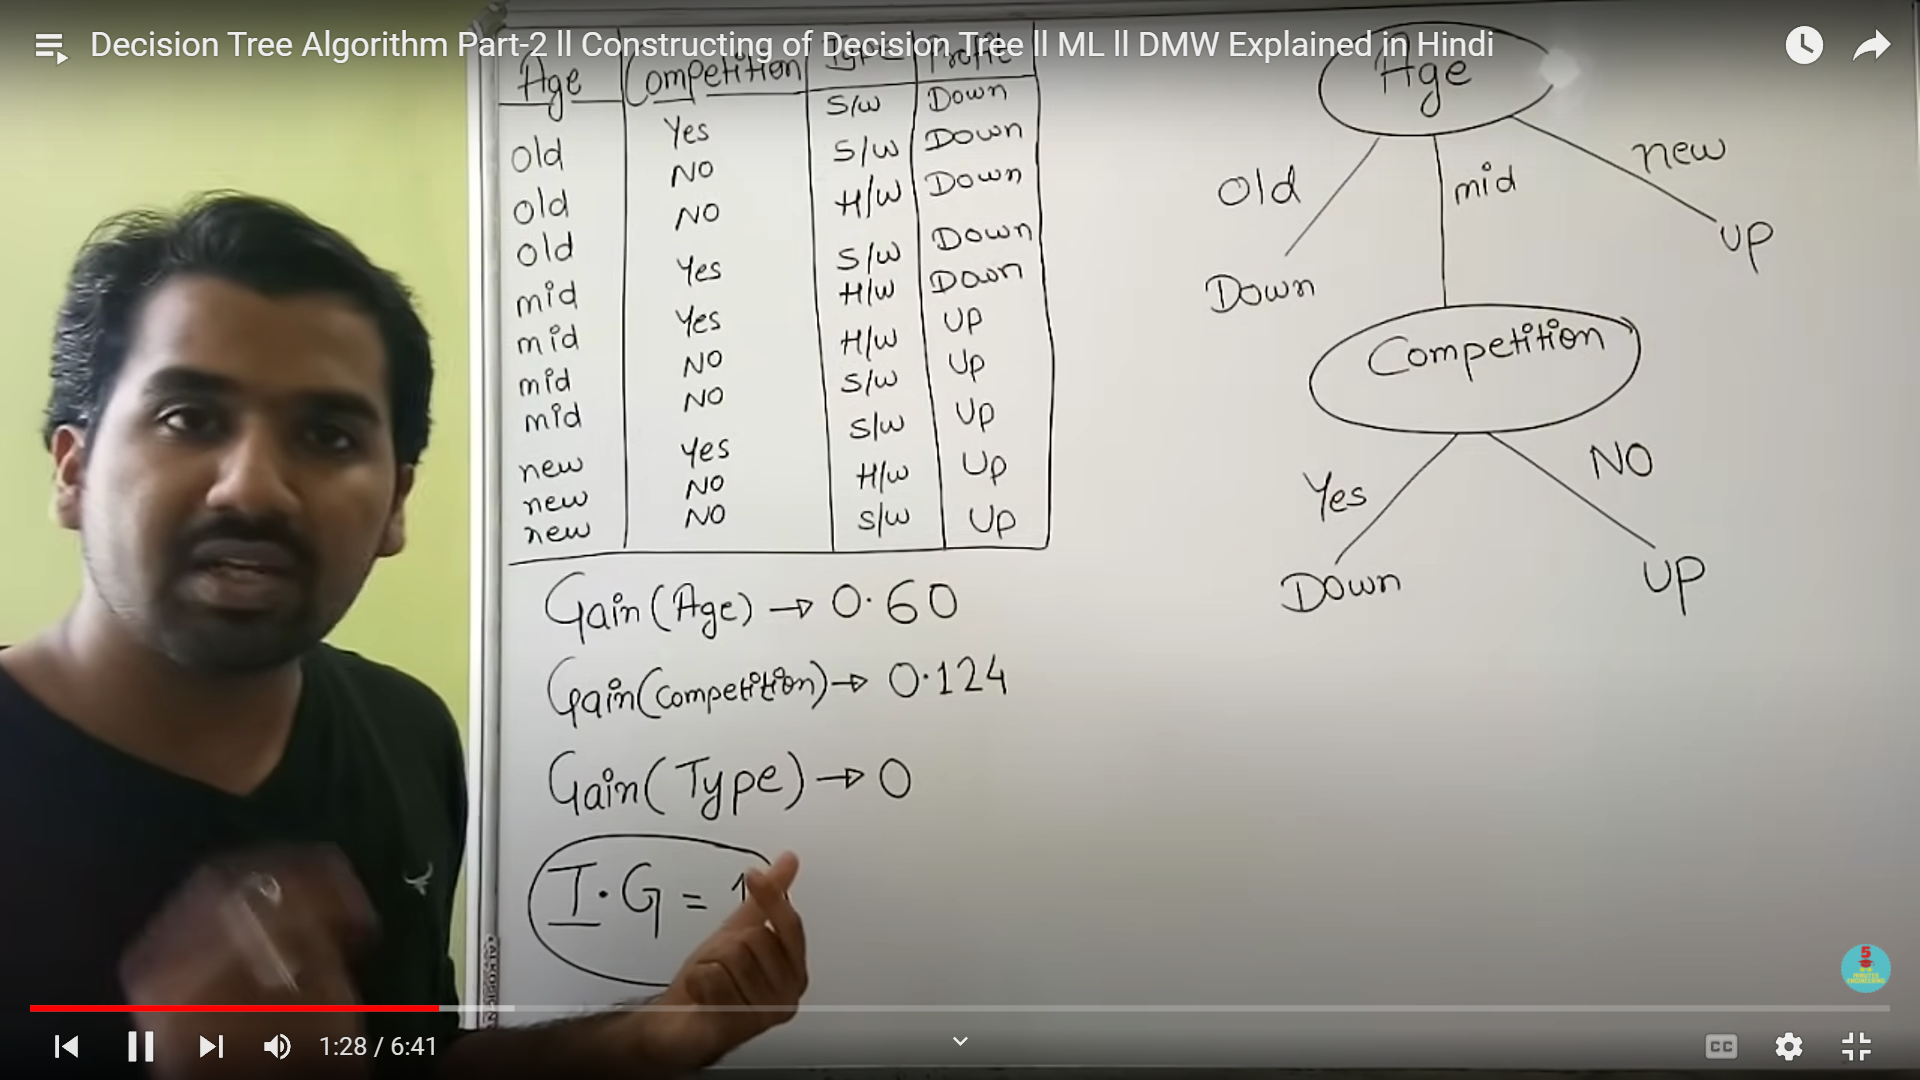 Decision Tree Algorithm Part-2 ll Constructing of Decision Tree ll ML ll DMW Explained in Hindi
Age Competition Type Profit
old Yes S/W Down
old NO S/W Down
old NO H/W Down
mid Yes S/W Down
mid Yes H/W Down
mid NO H/W UP
mid NO S/W UP
new Yes S/W UP
new NO H/W UP
new NO S/W UP
Gain(Age) → 0.60
Gain(Competition) → 0.124
Gain(Type) → 0
I.G = 1
Age
Old mid new
Down UP
Competition
Yes NO
Down UP
5
MINUTES
ENGINEERING
1:28 / 6:41
CC